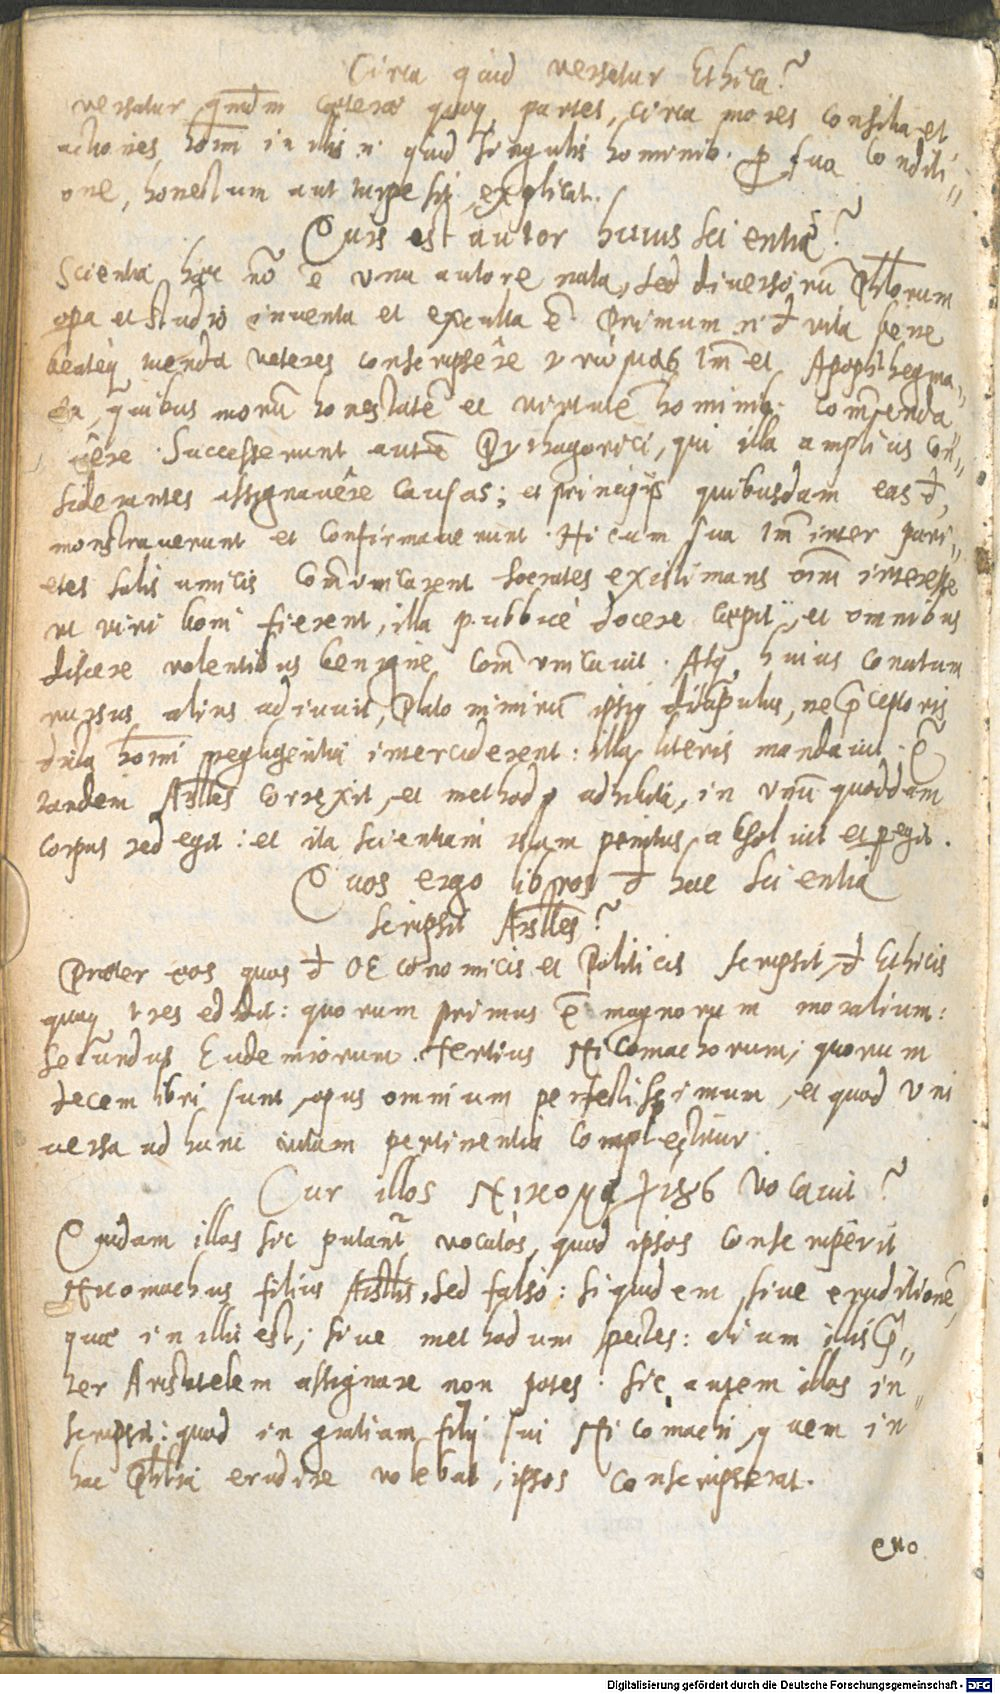 Circa quid versatur Ethica?
versatur quẽdm̃ cæteræ quoq, partes, circa mores consilia et
actiones, homĩ in illis .n. quid singulis hominib. ꝓ sua conditi„
one, honestum aut turpe sit, explicat.
Quis est autor huius scientiæ?
Scientia hæc nõ ẽ vna autore nata, sed diversorũ Philorum
opa et studio inventa et exculta ẽ. Primum .n. đ vita bene
beateq tuenda veteres conscripsêre γνώμας tm̃ et Apophthegma„
ta, quibus morũ honestatẽ et virtutẽ hominib. commenda
vêre. Successerunt autẽ Pythagorici, qui illa amplius con„
siderantes assignavêre causas; et principijs quibusdam eas đ,
monstraverunt et confirmaverunt. Hi cum sua tm̃ inter pari„
etes suis amicis communicarent Socrates existimans oĩm interesse
ut viri boni fierent, illa publicè docere cæpit, et omnibus
discere volentibus benigne communicavit. Atq, huius conatum
rursus alius adiuvit, Plato nimirũ ipsiq discipulus, ne p̃ceptoris
dicta homĩ negligentia interciderent: illa literis mandavit.
tandem Arstles correxit, et methodo adhibita, in vnũ quoddam
corpus redegit: et ita scientiam istam penitus absolvit et pegit.
Quos ergo libros đ hac scientia
scripsit Arstles?
Præter eos quos đ OEconomicis et Politicis scripsit, đ Ethicis
quoq tres edidit: quorum primus ẽ magnorum moralium:
Secundus Eudemiorum. Tertius Nicomachorum; quorum
decem libri sunt, opus omnium perfectissimum, et quod Vni
versa ad hanc vitam pertinentia complectitur.
Cur illos Νικομαχείους vocavit?
Quidam illos sic putant vocatos, quod ipsos conscripserit
Nicomachus filius Arstlis, sed falso: siquidem, sive eruditionẽ,
quæ in illis est; sive methodum spectes: alium illis p̃„
ter Aristotelem assignare non potes. Sic autem illos in„
scripsit: quod in gratiam filij sui Nicomachi, quem in
hac Philia erudire volebat, ipsos conscripserat.